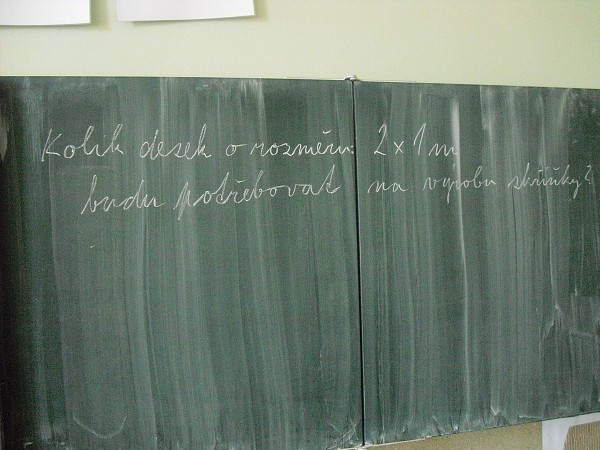 Kolik desek o rozměru: 2 x 1 m
budu potřebovat na výrobu skříňky?